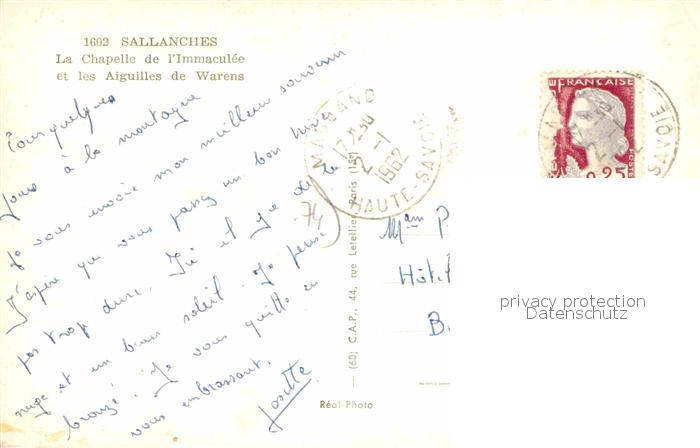 1602 SALLANCHES
La Chapelle de l'Immaculée
et les Aiguilles de Warens
Pour quelques
jours à la montagne
je vous envoie mon meilleur souvenir
J'espère que vous passez un bon hiver
pas trop dur. Ici il y a de la
neige et un beau soleil. Je pense
bronzé. Je vous quitte en
vous embrassant.
Josette
MAGLAND
17H30
2-1
1962
HAUTE-SAVOIE
74
FRANÇAISE
0,25
2-1
SAVOIE
Mam P
Hôt
B
privacy protection
Datenschutz
(60) C.A.P., 44, rue Letellier, Paris (15e)
Réal-Photo